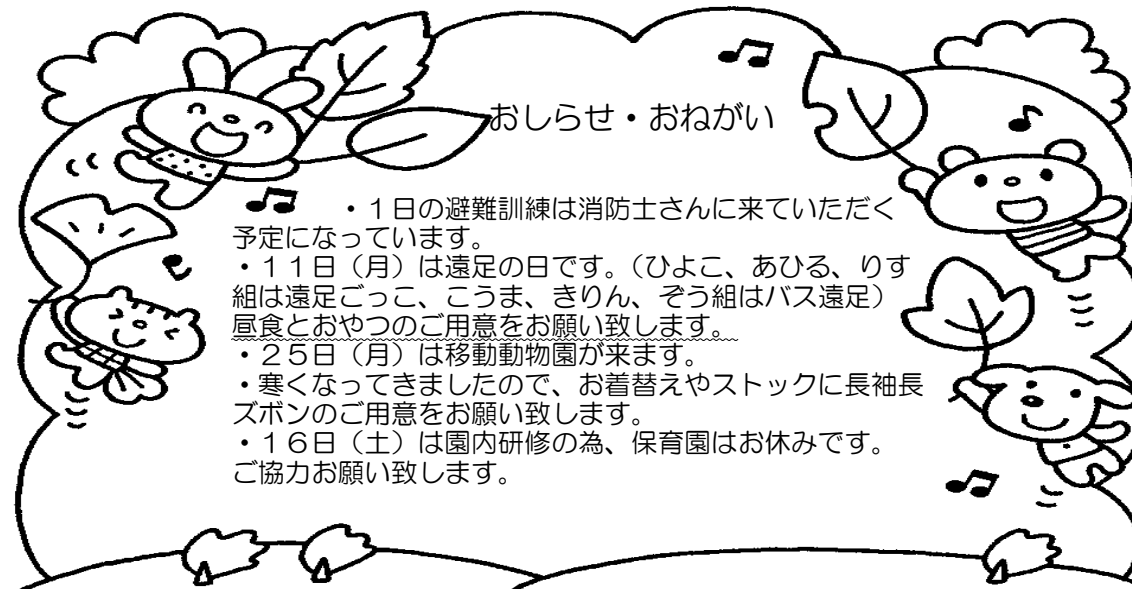 おしらせ・おねがい
・１日の避難訓練は消防士さんに来ていただく
予定になっています。
・１１日（月）は遠足の日です。（ひよこ、あひる、りす
組は遠足ごっこ、こうま、きりん、ぞう組はバス遠足）
昼食とおやつのご用意をお願い致します。
・２５日（月）は移動動物園が来ます。
・寒くなってきましたので、お着替えやストックに長袖長
ズボンのご用意をお願い致します。
・１６日（土）は園内研修の為、保育園はお休みです。
ご協力お願い致します。